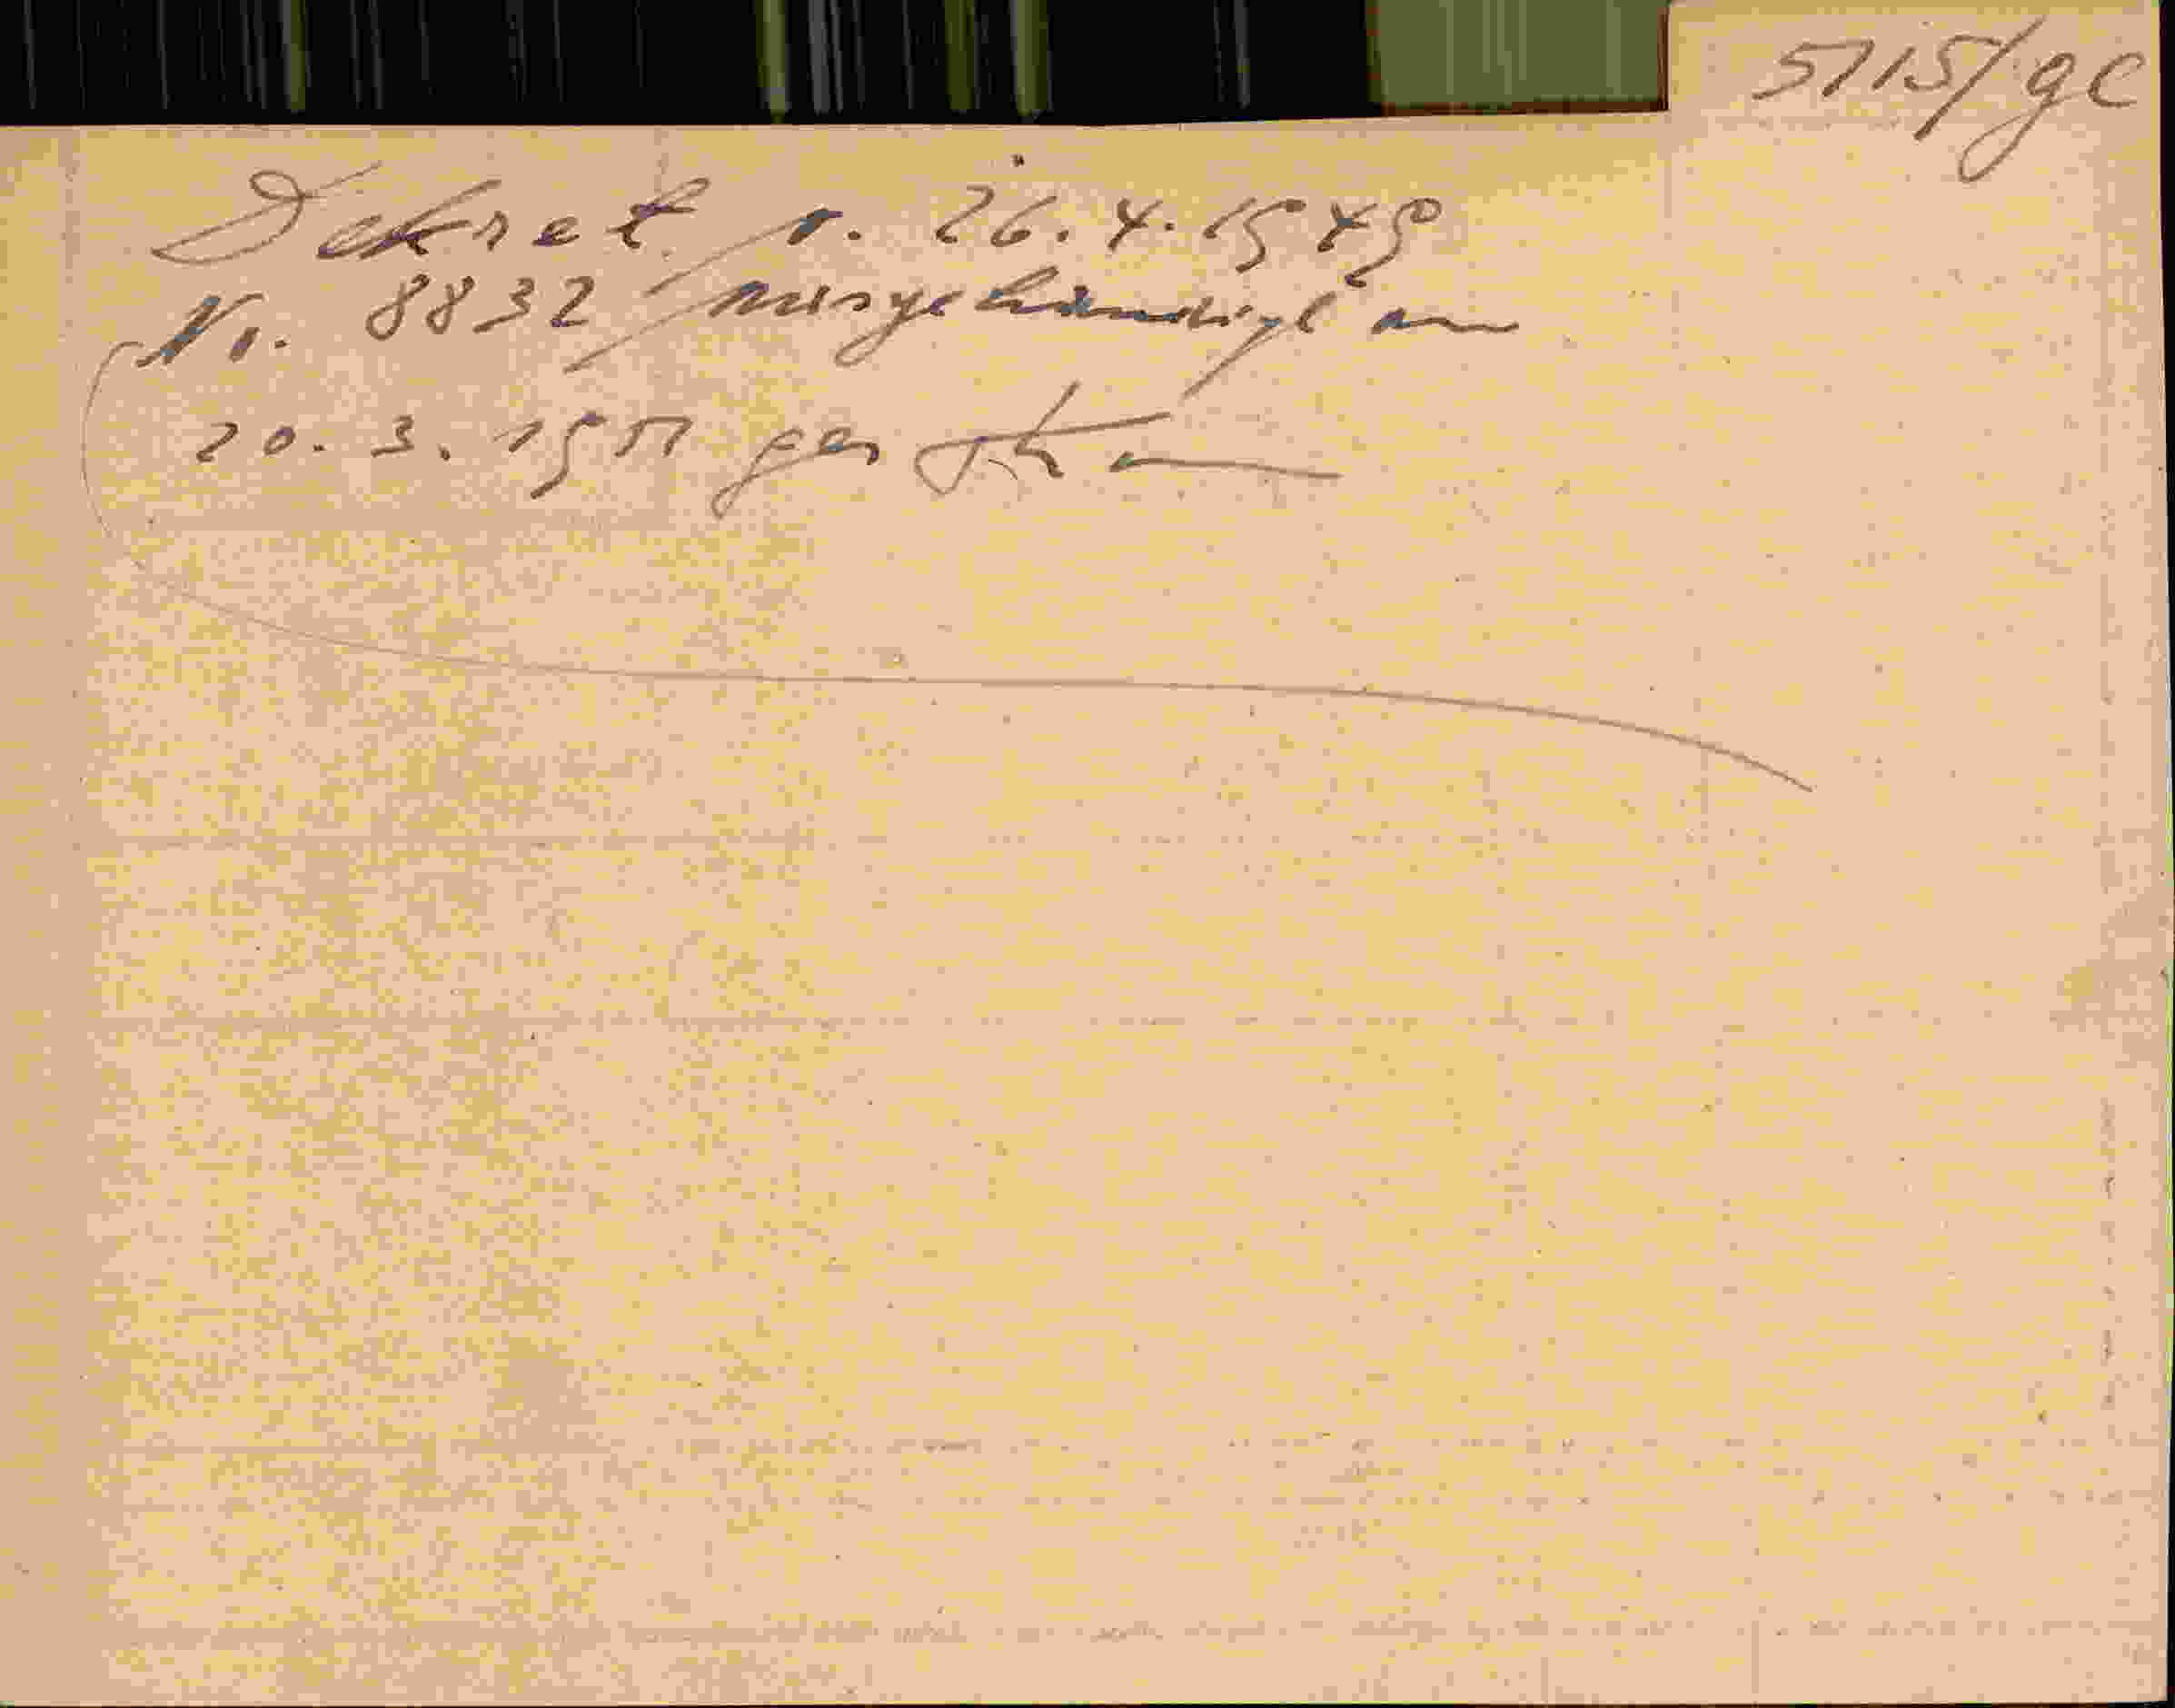 5715/gl
Dekret v. 26.4.1949
Nr. 8832 ausgehändigt am
20.3.1951 gez